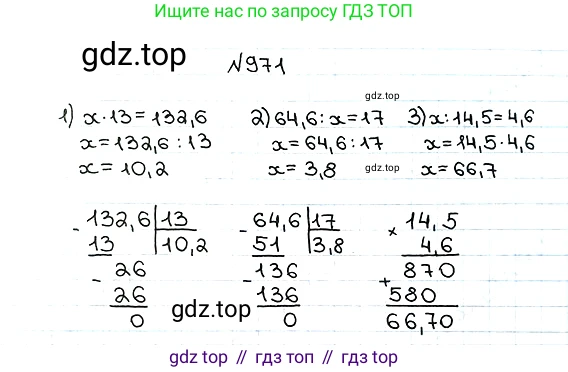 Ищите нас по запросу ГДЗ ТОП
gdz.top №971
gdz.top
1) x·13=132,6 2) 64,6:x=17 3) x:14,5=4,6
x=132,6:13 x=64,6:17 x=14,5·4,6
x=10,2 x=3,8 gdz.top x=66,7
- 132,6 | 13 - 64,6 | 17 × 14,5
13 10,2 51 3,8 4,6
- 26 - 136 870
26 136 + 580
0 gdz.top 0 66,70
gdz.top // гдз топ // гдз.топ